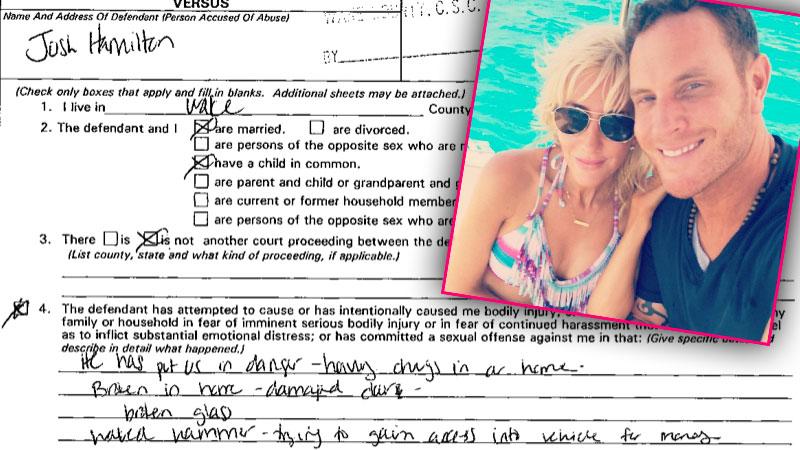 VERSUS
Name And Address Of Defendant (Person Accused Of Abuse)
Josh Hamilton
C.S.C.
BY
(Check only boxes that apply and fill in blanks. Additional sheets may be attached.)
1. I live in wake County
2. The defendant and I are married. are divorced.
are persons of the opposite sex who are
have a child in common.
are parent and child or grandparent and
are current or former household member
are persons of the opposite sex who are
3. There is is not another court proceeding between the de
(List county, state and what kind of proceeding, if applicable.)
4. The defendant has attempted to cause or has intentionally caused me bodily injury,
family or household in fear of imminent serious bodily injury or in fear of continued harassment
as to inflict substantial emotional distress; or has committed a sexual offense against me in that: (Give specific
describe in detail what happened.)
He has put us in danger - having drugs in our home.
Broken in home - damaged
broken glass
hammer - trying to gain access into vehicle for money